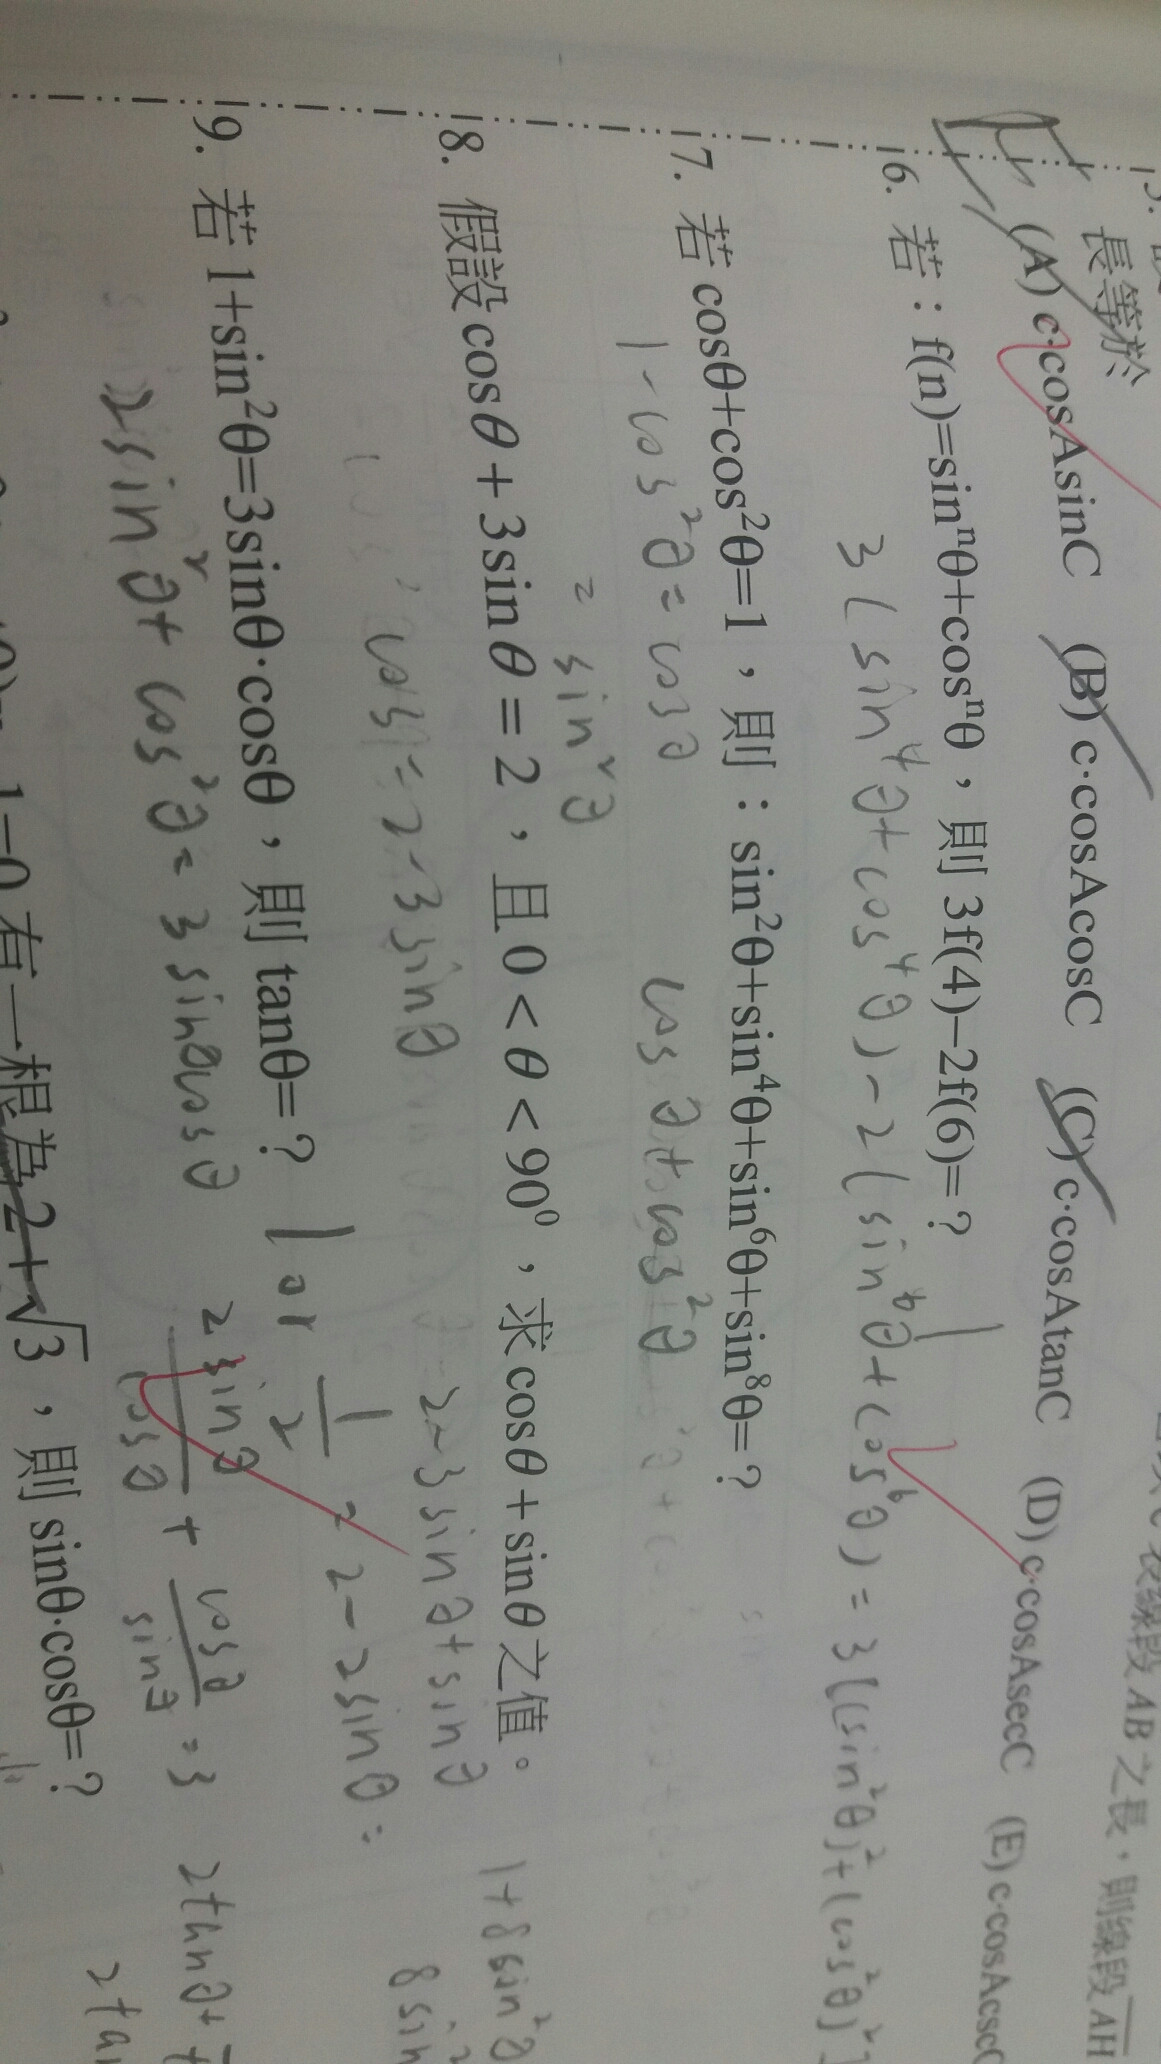 長等於
(A) c·cosAsinC (B) c·cosAcosC (C) c·cosAtanC (D) c·cosAsecC (E) c·cosAcsc
6. 若：f(n)=sinⁿθ+cosⁿθ，則 3f(4)−2f(6)=？ 1
3(sin⁴θ+cos⁴θ)−2(sin⁶θ+cos⁶θ)=3[(sin²θ)²+(cos²θ)²
7. 若 cosθ+cos²θ=1，則：sin²θ+sin⁴θ+sin⁶θ+sin⁸θ=？
1−cos²θ=cosθ cosθ+cos²θ
=sin²θ
8. 假設 cosθ+3sinθ=2，且 0<θ<90⁰，求 cosθ+sinθ 之值。
cosθ=2−3sinθ 2−3sinθ+sinθ
=2−2sinθ=
9. 若 1+sin²θ=3sinθ·cosθ，則 tanθ=？ 1 or 1/2
2sin²θ+cos²θ=3sinθcosθ 2sinθ/cosθ+cosθ/sinθ=3 2tanθ+
1=0 有一根為 2+√3，則 sinθ·cosθ=？